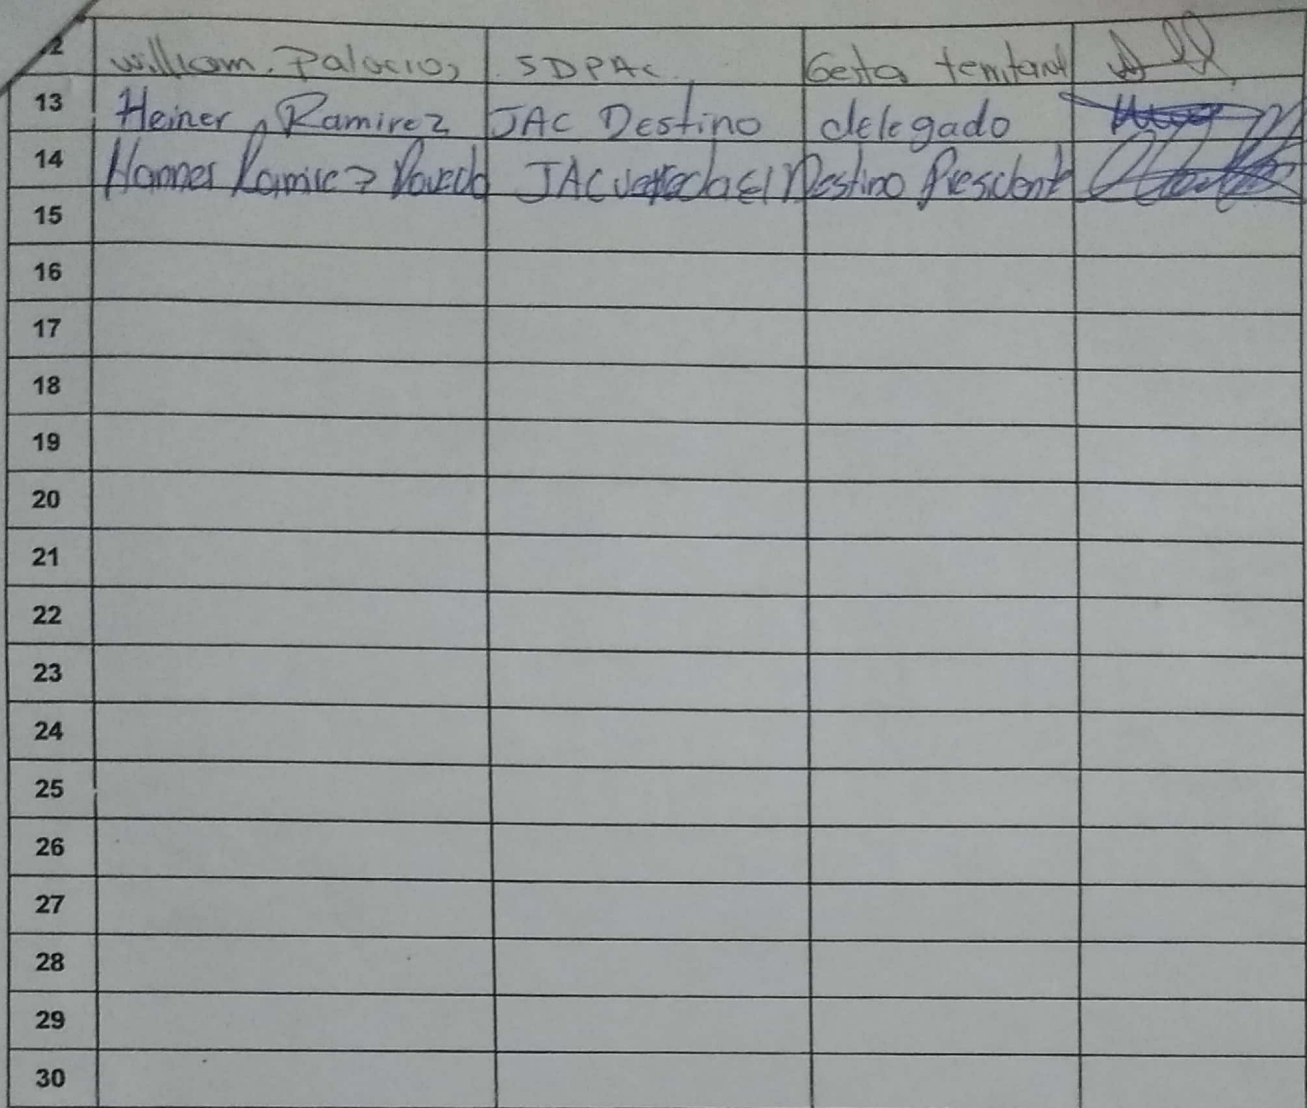 2 William. Palacios SDPAC Gesto territorial
13 Heiner Ramirez JAC Destino delegado
14 Ramirez JAC vereda el Destino President
15
16
17
18
19
20
21
22
23
24
25
26
27
28
29
30